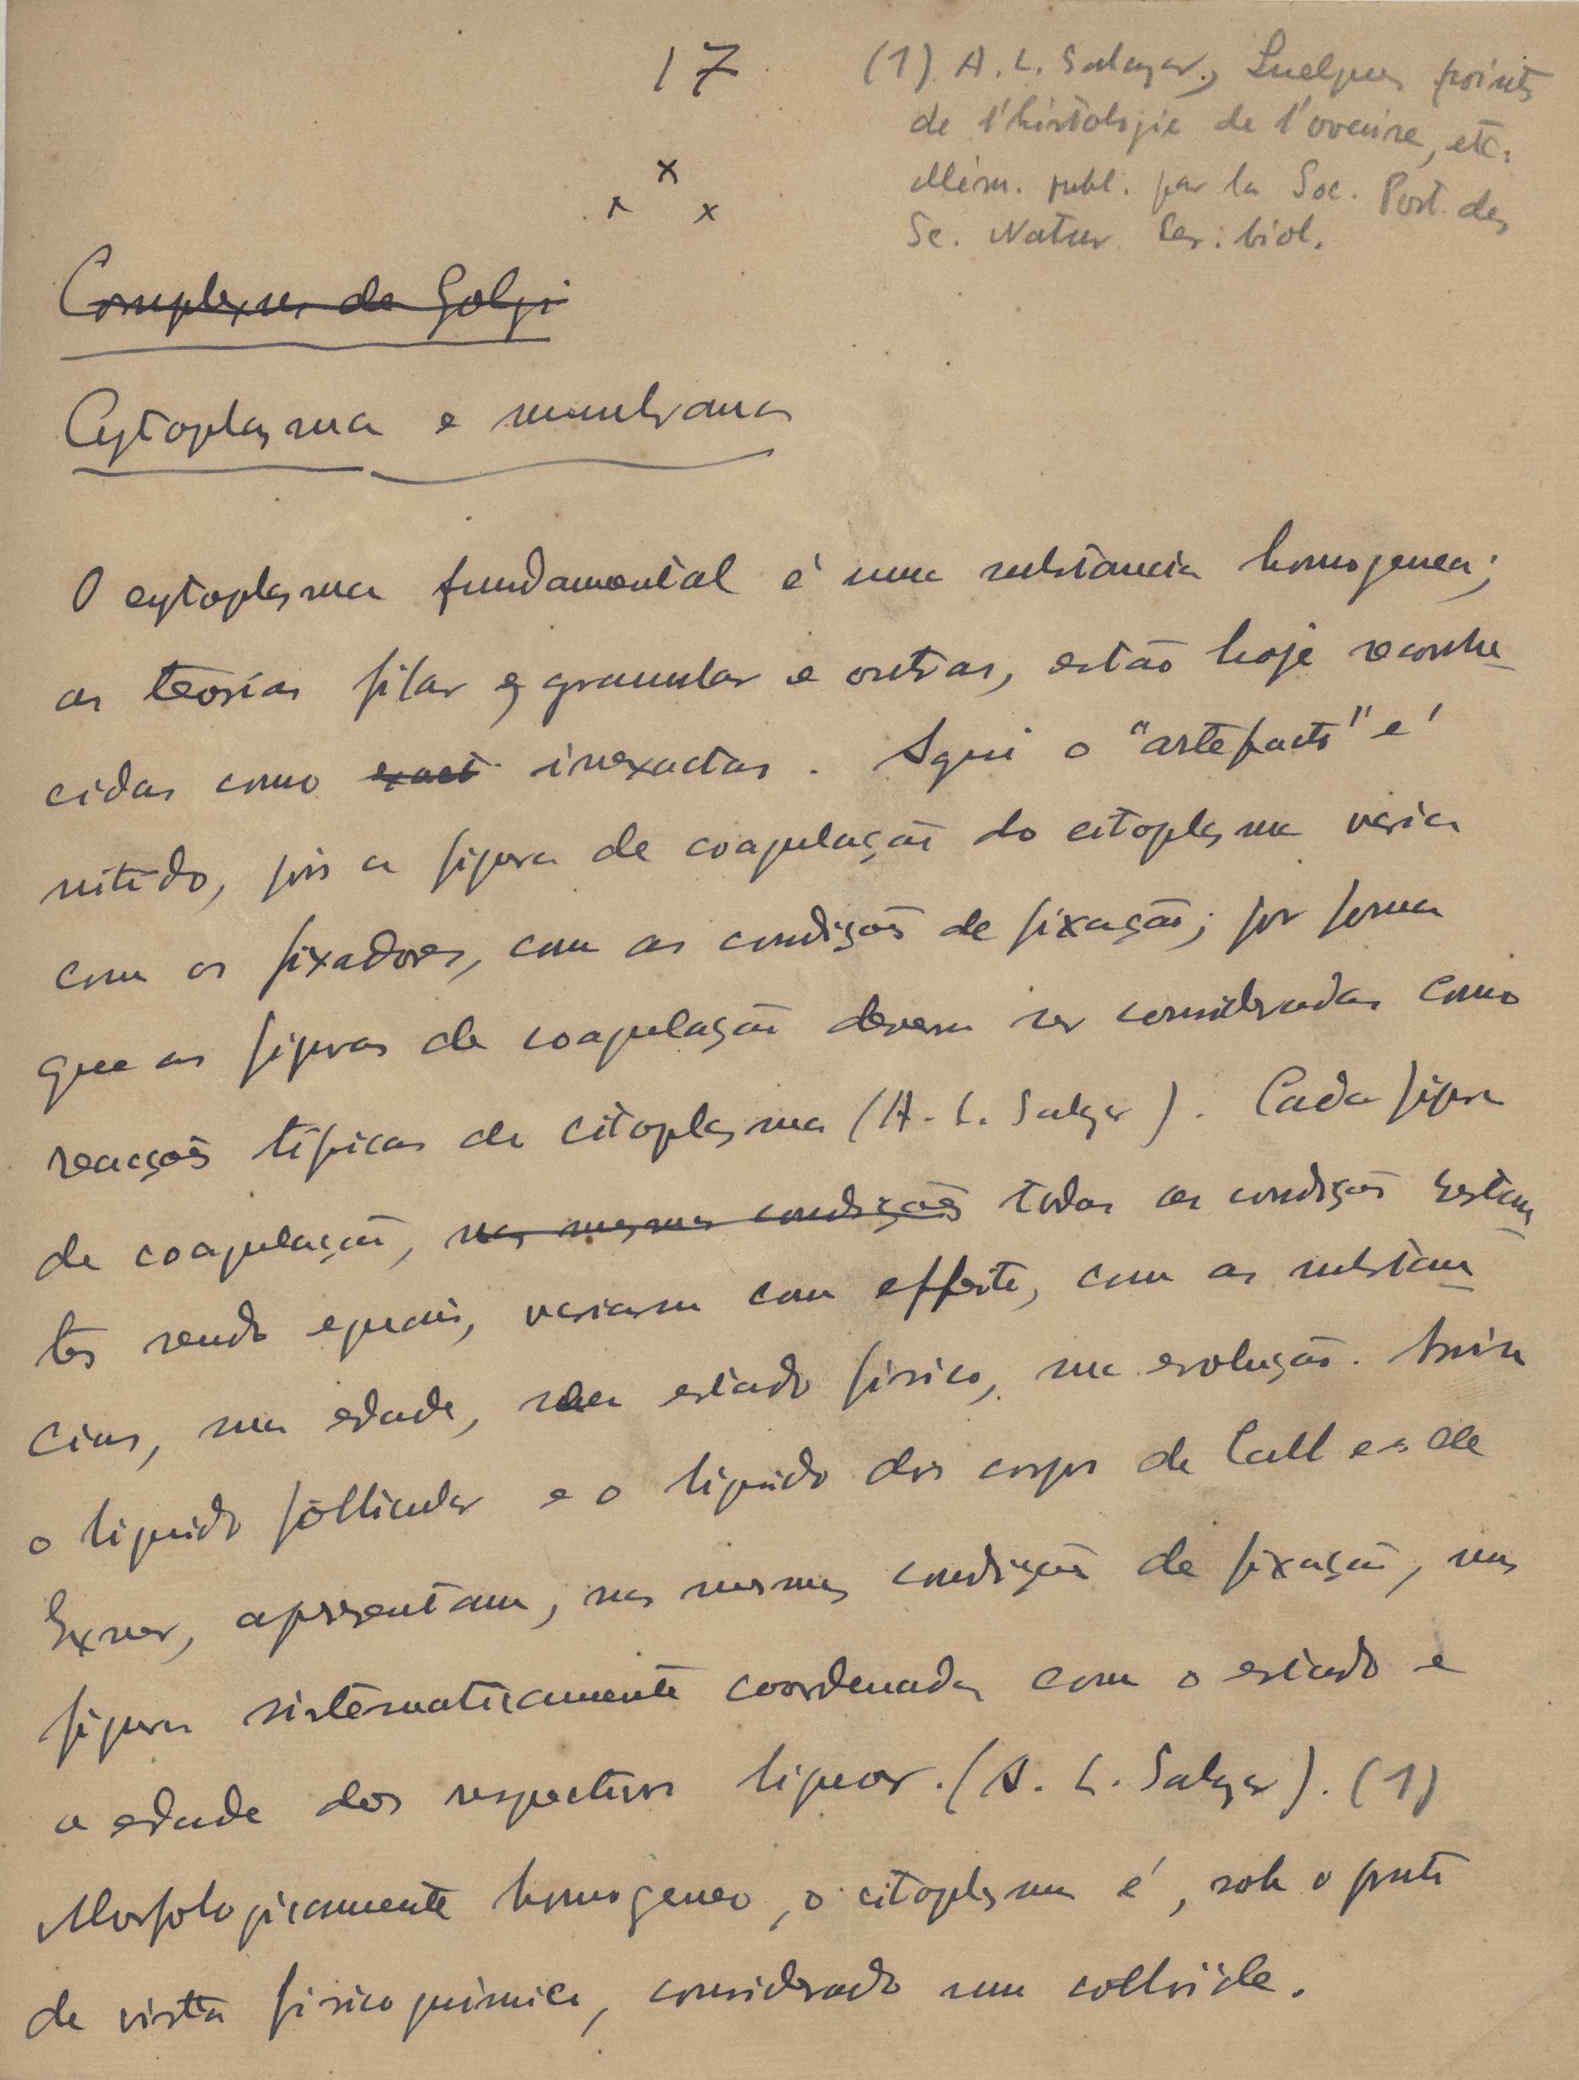 17
(1) A. L. Salazar, Quelques points
de l'histologie de l'ovaire, etc.
Mém. publ. par la Soc. Port. des
Sc. Natur. Ser. biol.
x
x x
Complexus de Golgi
Cytoplasma e membrana
O cytoplasma fundamental é uma substancia homogenea;
as teorias filar e granular e outras, estão hoje reconhe
cidas como exact inexactas. Aqui o "artefacto" é
nitido, pois a figura de coagulação do citoplasma varia
com os fixadores, com as condições de fixação; por forma
que as figuras de coagulação devem ser consideradas como
reacções tipicas de citoplasma (A. L. Salazar). Cada figura
de coagulação, nas mesmas condições todas as condições restan
tes sendo eguais, variam com effeito, com as substan
cias, sua edade, seu estado fisico, sua evolução. Assim
o liquido follicular e o liquido dos corpos de Call e de
Exner, apresentam, nas mesmas condições de fixação, uma
figura sistematicamente coordenada com o estado e
a edade dos respectivos liquor. (A. L. Salazar). (1)
Morfologicamente homogeneo, o citoplasma é, sob o ponto
de vista fisico quimico, considerado um colloide.